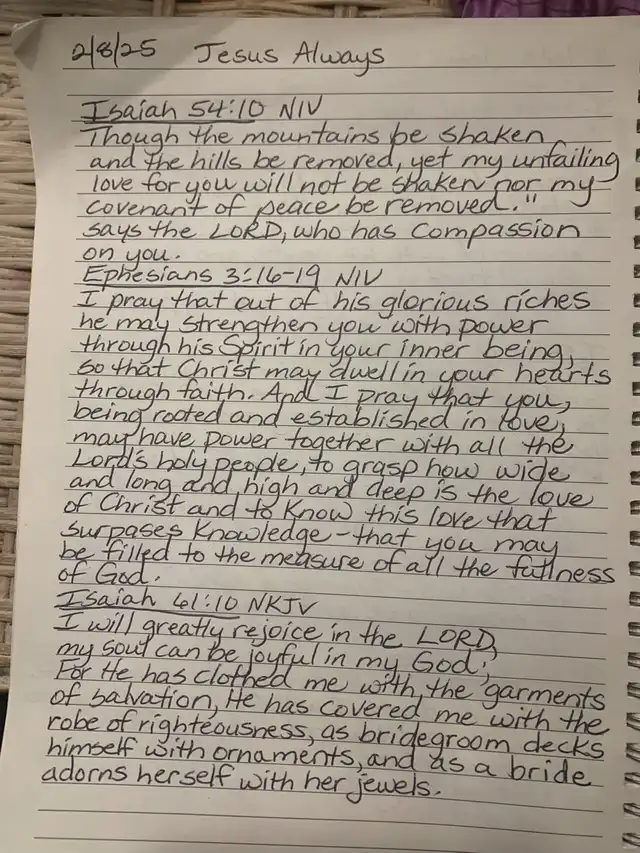 2/8/25 Jesus Always
Isaiah 54:10 NIV
Though the mountains be shaken
and the hills be removed, yet my unfailing
love for you will not be shaken nor my
covenant of peace be removed."
says the LORD, who has compassion
on you.
Ephesians 3:16-19 NIV
I pray that out of his glorious riches
he may strengthen you with power
through his Spirit in your inner being,
so that Christ may dwell in your hearts
through faith. And I pray that you,
being rooted and established in love,
may have power together with all the
Lord's holy people, to grasp how wide
and long and high and deep is the love
of Christ and to know this love that
surpases knowledge-that you may
be filled to the measure of all the fullness
of God.
Isaiah 61:10 NKJV
I will greatly rejoice in the LORD,
my soul can be joyful in my God;
For He has clothed me with the garments
of salvation, He has covered me with the
robe of righteousness, as bridegroom decks
himself with ornaments, and as a bride
adorns herself with her jewels.